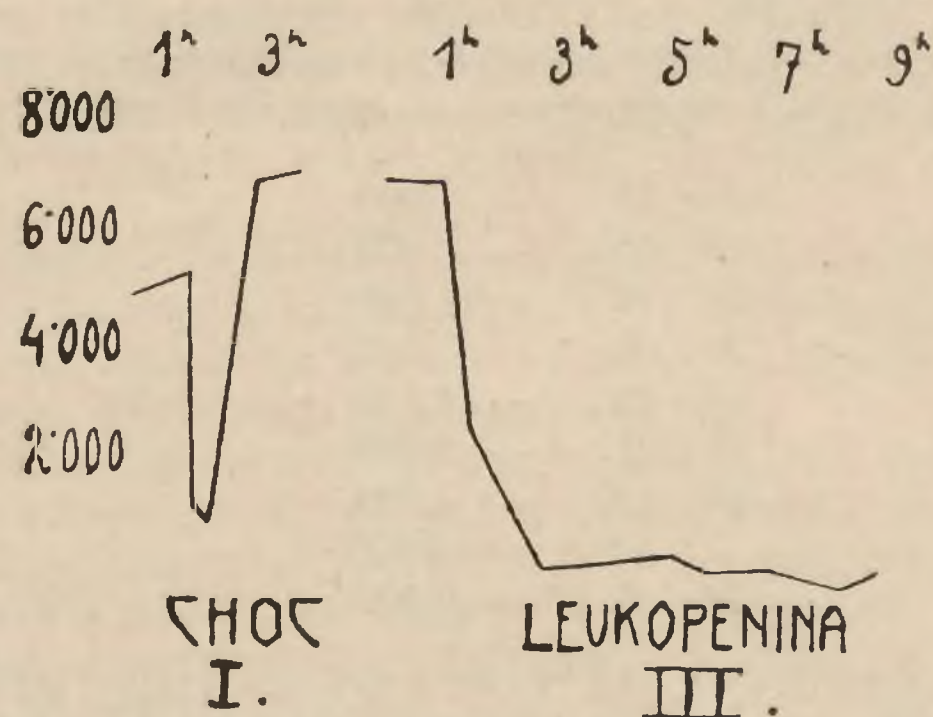 1ʰ 3ʰ 1ʰ 3ʰ 5ʰ 7ʰ 9ʰ
8·000
6·000
4·000
2·000
CHOC LEUKOPENINA
I. III.